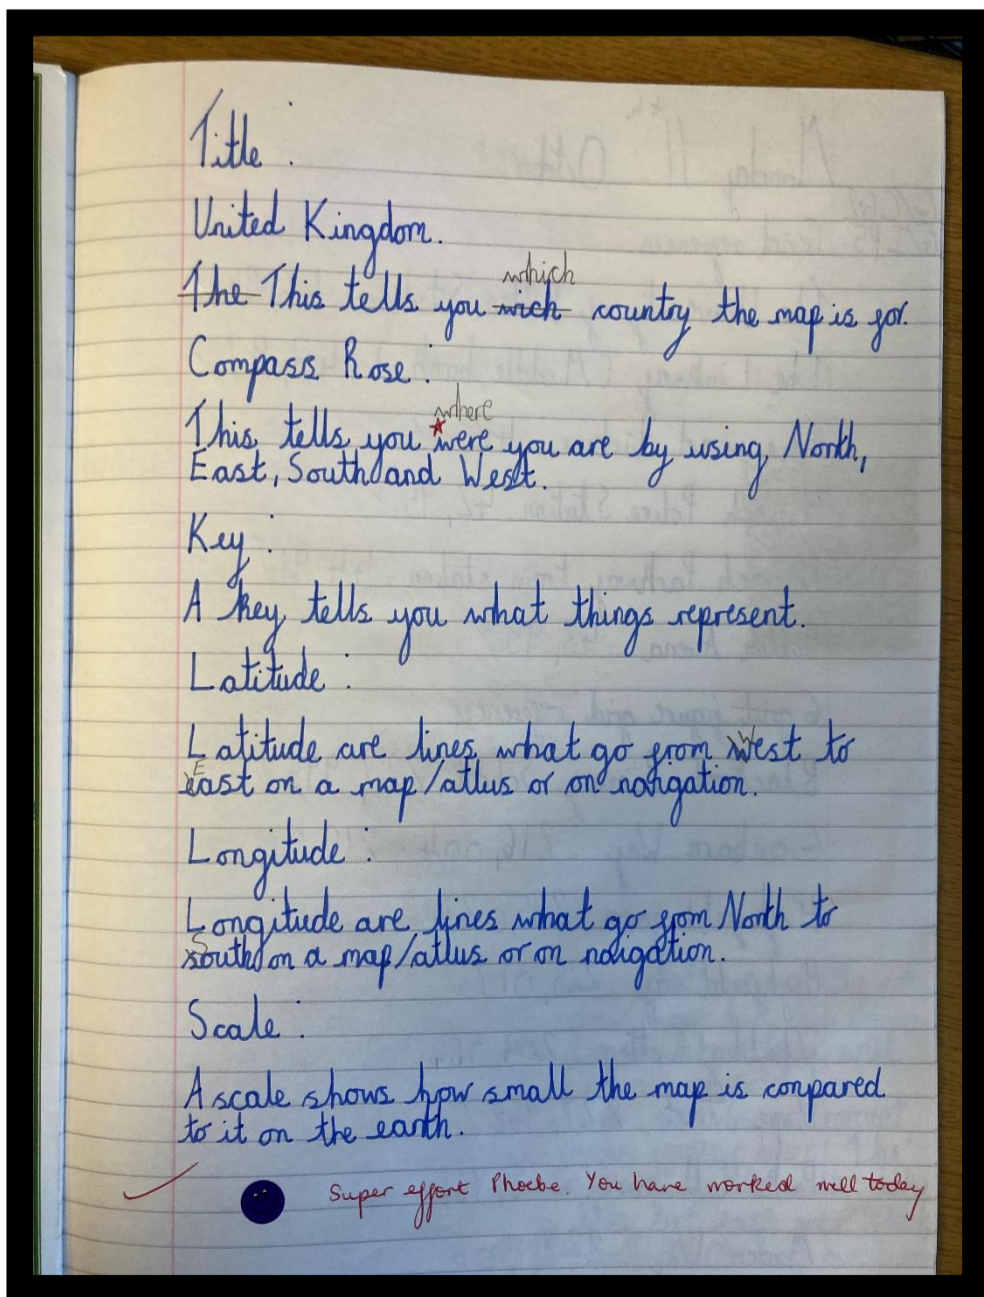 Title :
United Kingdom.
which
The This tells you wich country the map is for.
Compass Rose :
where
This tells you were you are by using North,
East, South and West.
Key :
A key tells you what things represent.
Latitude :
Latitude are lines what go from West to
East on a map/atlus or on navigation.
Longitude :
Longitude are lines what go from North to
South on a map/atlus or on navigation.
Scale :
A scale shows how small the map is conpared
to it on the earth.
Super effort Phoebe. You have worked well today